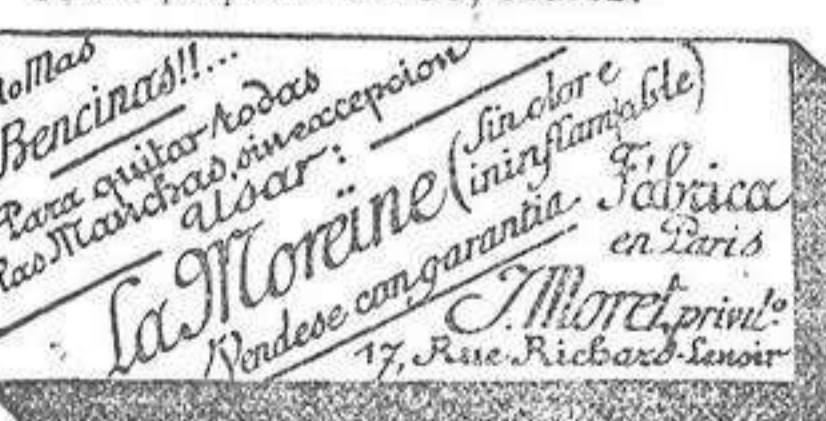 Mas
Bencinas!!...
Para quitar todas
las Manchas, sin excepcion
Usar:
La Moreïne (sin olor e
ininflamable)
Vendese con garantia
Fábrica
en Paris
J. Moret, privil.º
17, Rue Richard-Lenoir